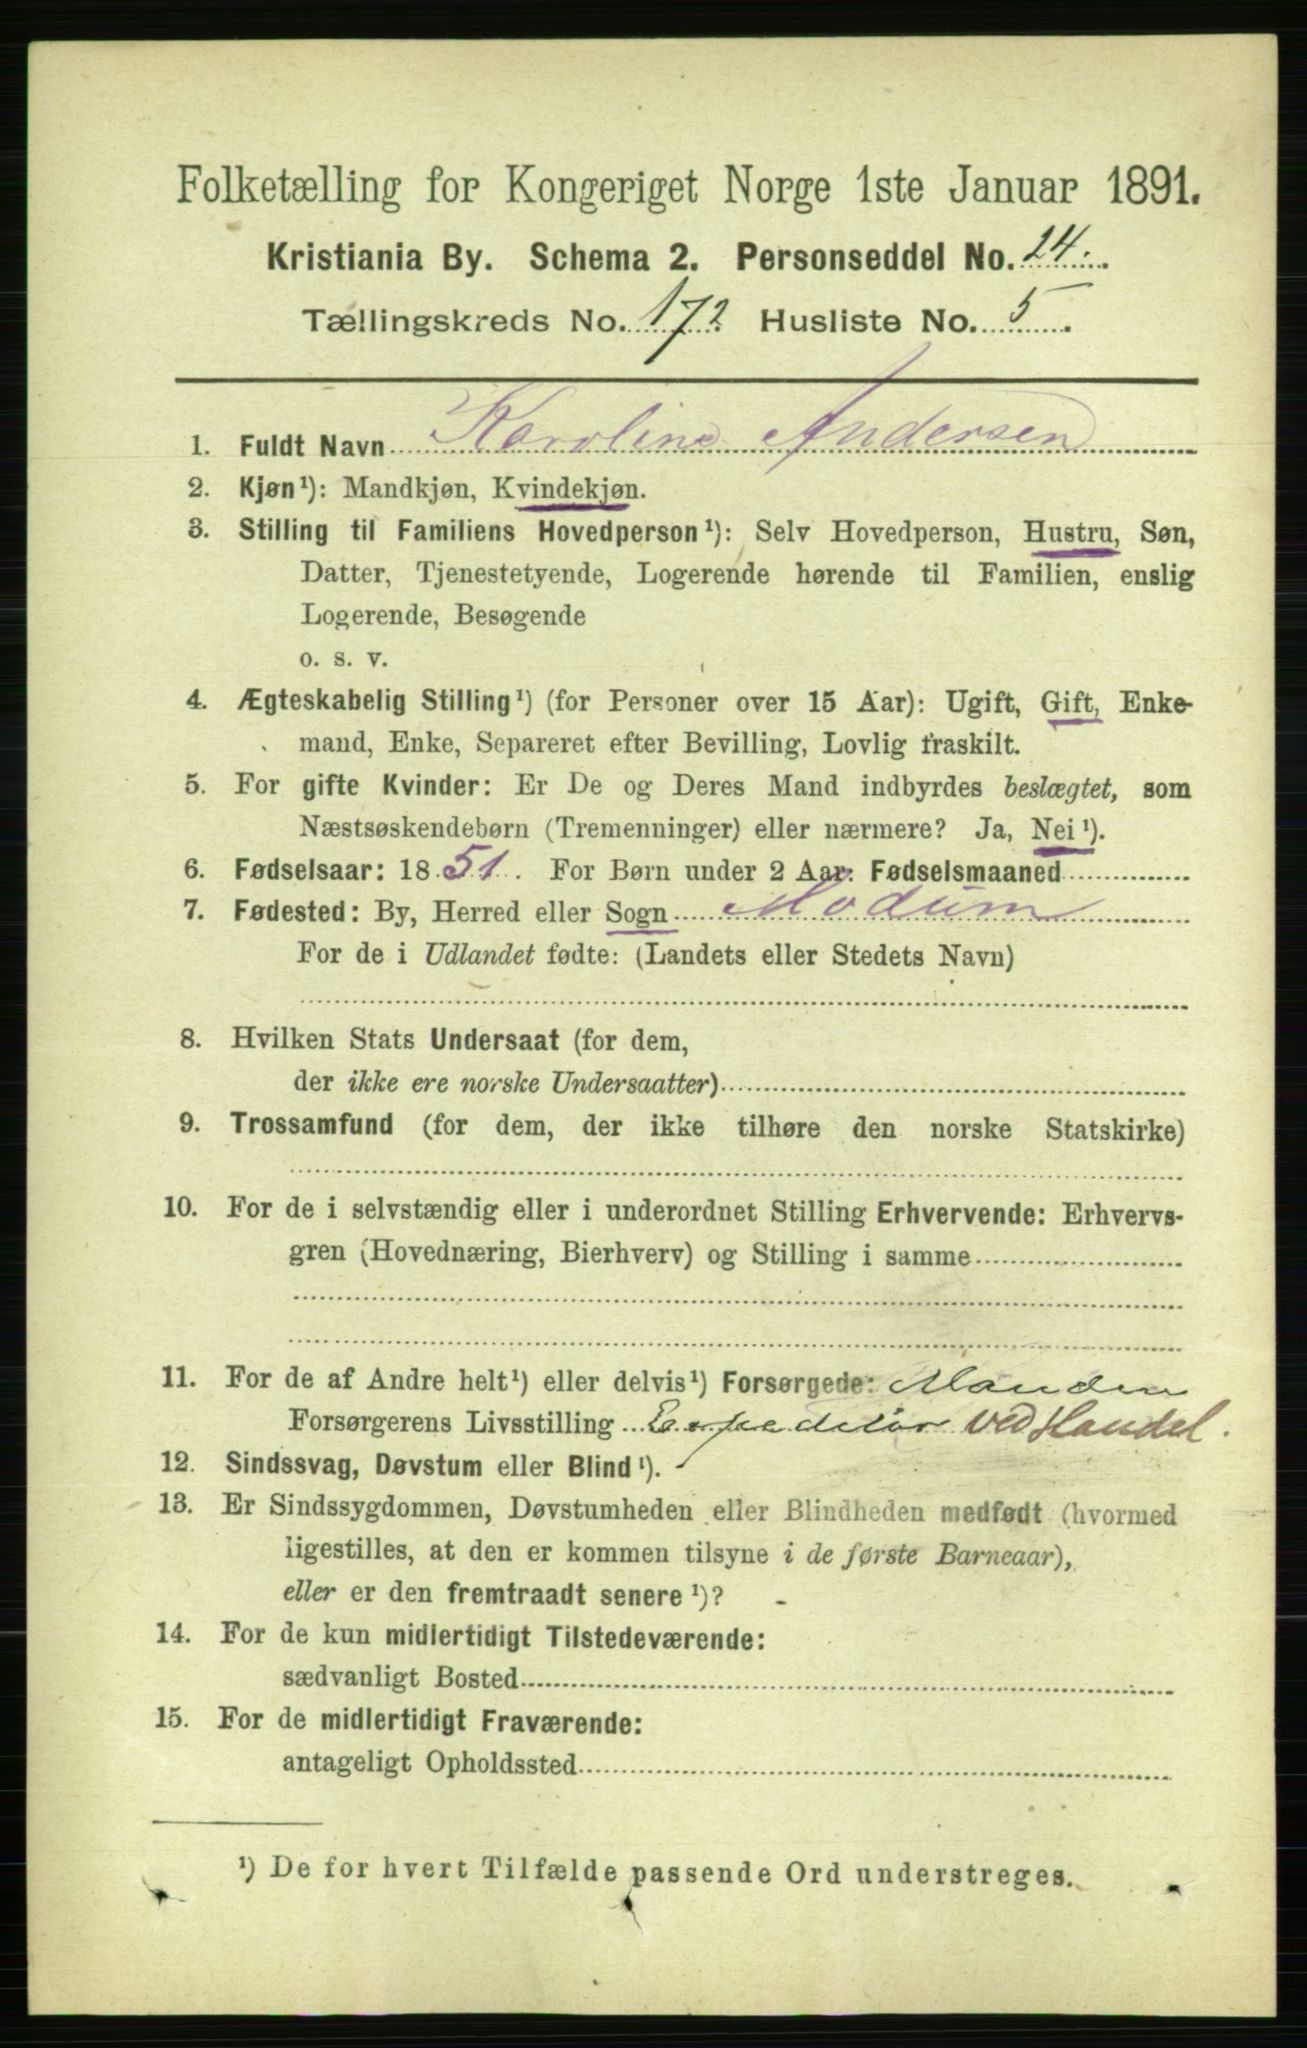 Folketælling for Kongeriget Norge 1ste Januar 1891.
Kristiania By. Schema 2. Personseddel No. 24.
Tællingskreds No. 172 Husliste No. 5.
1. Fuldt Navn Karoline Andersen
2. Kjøn¹): Mandkjøn, Kvindekjøn.
3. Stilling til Familiens Hovedperson¹): Selv Hovedperson, Hustru, Søn,
Datter, Tjenestetyende, Logerende hørende til Familien, enslig
Logerende, Besøgende
o. s. v.
4. Ægteskabelig Stilling¹) (for Personer over 15 Aar): Ugift, Gift, Enke-
mand, Enke, Separeret efter Bevilling, Lovlig fraskilt.
5. For gifte Kvinder: Er De og Deres Mand indbyrdes beslægtet, som
Næstsøskendebørn (Tremenninger) eller nærmere? Ja, Nei¹).
6. Fødselsaar: 1851. For Børn under 2 Aar: Fødselsmaaned
7. Fødested: By, Herred eller Sogn Modum
For de i Udlandet fødte: (Landets eller Stedets Navn)
8. Hvilken Stats Undersaat (for dem,
der ikke ere norske Undersaatter)
9. Trossamfund (for dem, der ikke tilhøre den norske Statskirke)
10. For de i selvstændig eller i underordnet Stilling Erhvervende: Erhvervs-
gren (Hovednæring, Bierhverv) og Stilling i samme
11. For de af Andre helt¹) eller delvis¹) Forsørgede: Manden
Forsørgerens Livsstilling Expeditør ved Handel.
12. Sindssvag, Døvstum eller Blind¹).
13. Er Sindssygdommen, Døvstumheden eller Blindheden medfødt (hvormed
ligestilles, at den er kommen tilsyne i de første Barneaar),
eller er den fremtraadt senere¹)? -
14. For de kun midlertidigt Tilstedeværende:
sædvanligt Bosted
15. For de midlertidigt Fraværende:
antageligt Opholdssted
¹) De for hvert Tilfælde passende Ord understreges.